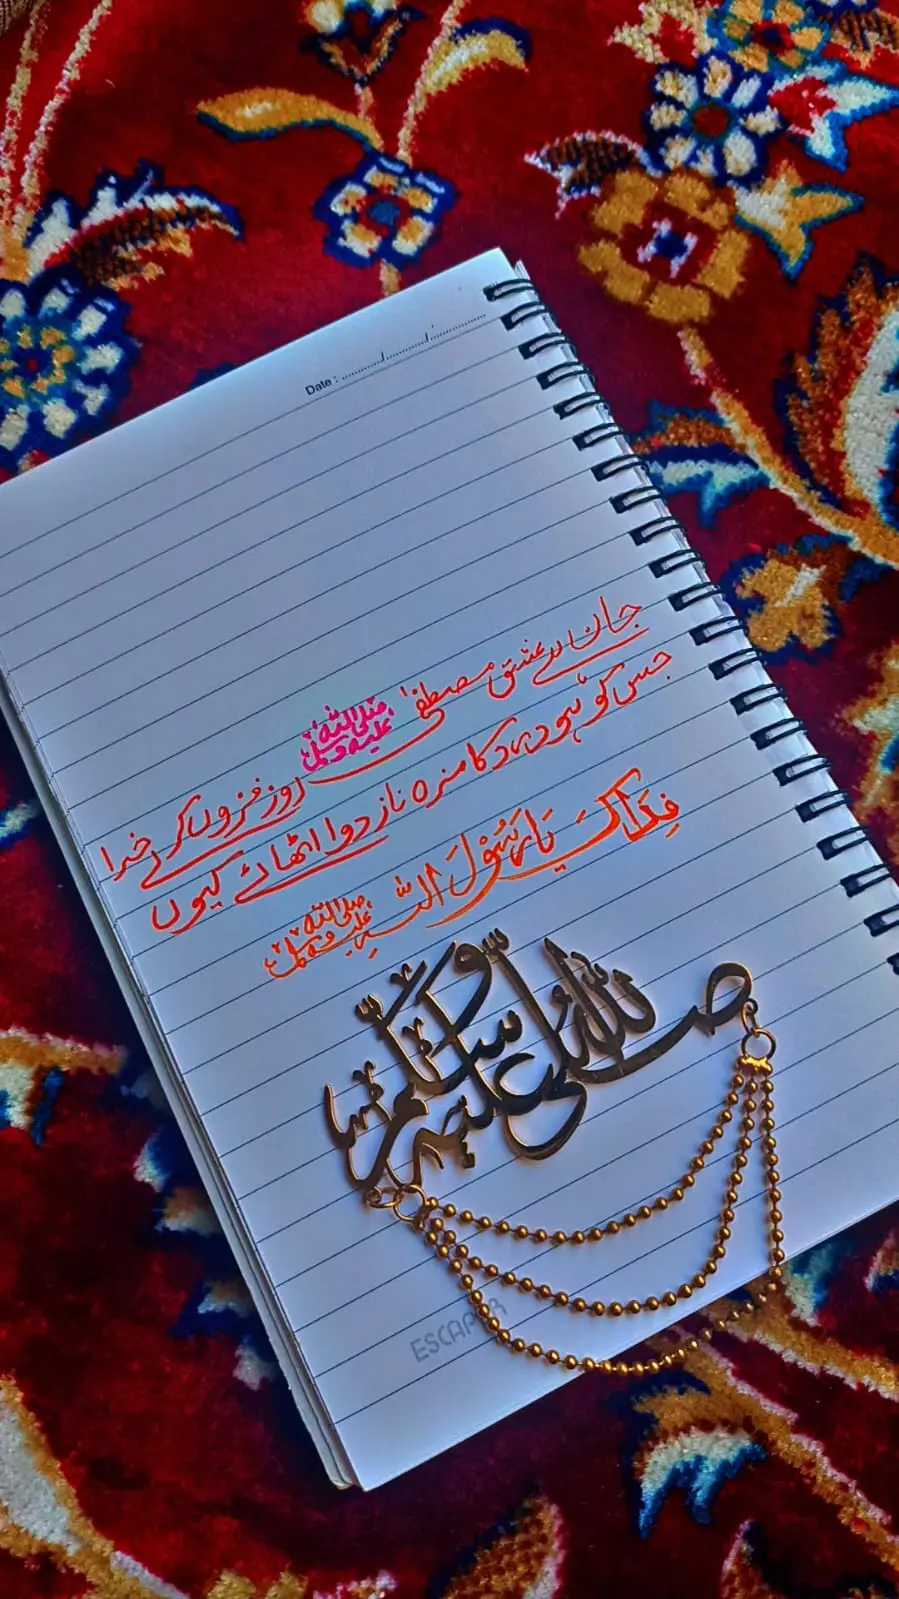 Date : ............/............/............
جان ہے عشق مصطفیٰ ﷺ روز فزوں کرے خدا
جس کو ہو درد کا مزہ ناز دوا اٹھائے کیوں
فِدَاکَ یَا رَسُوْلَ اللّٰہ ﷺ
صلى الله عليه وسلم
ESCAPER